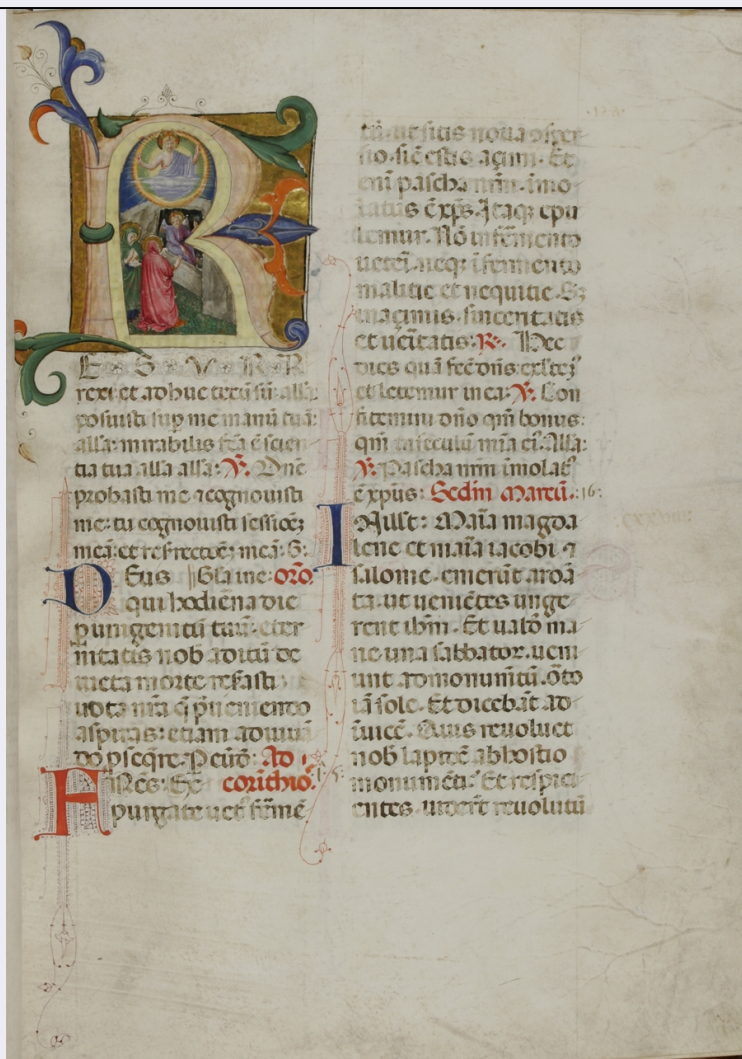 R
E S V R R
rexi et adhuc tecũ sũ. alła:
posuisti sup me manũ tuã:
alła: mirabilis fcã ẽ scien
tia tua alla alla: ℣. Dñe
probasti me ⁊ cognouisti
me: tu cognouisti sessionẽ
meã: et resrectõe; meã: S:
DEus Gla ine: orõ.
qui hodiẽna die
p unigenitũ tuũ. eter
nitatis nob aditũ de
uicta morte
uota nr̃a q̃ pueniendo
aspiras: etiam adiuuã
do psequere. P eũd: Ad
FRes: Ex corinthio.
purgate uet fermẽ
tũ. ut sitis noua ꝯsper
sio. sic̃ estis açimi. Et
eni pascha nr̃m. imo
latus ẽ xp̃s. Itaq; epu
lemur. Nõ in fẽmento
uetei. neq; ĩ fermento
malitie et nequitie. S;
in açimis. sinceritatis
et ueitatis: ℟. Hec
dies quã fec̃ dñs exltẽ
et letemur in ea: ℣. Con
fitemini dño qm̃ bonus:
qm̃ in seculũ mĩa ei. Alla:
℣. Pascha nr̃m ĩmolat
ẽ xpũs: Scdm Marcũ. :16:
IN illt: Maĩa magda
lene et maĩa iacobi ⁊
salome. emerũt aroã
ta. ut ueniẽtes unge
rent ihm. Et ualđ ma
ne una sabbatoꝝ. ueni
unt ad monumtũ. orto
iã sole. Et dicebãt ad
ĩuicẽ. Quis reuoluet
nob lapidẽ ab hostio
monumẽti: Et respici
entes. uiderẽt reuolutũ